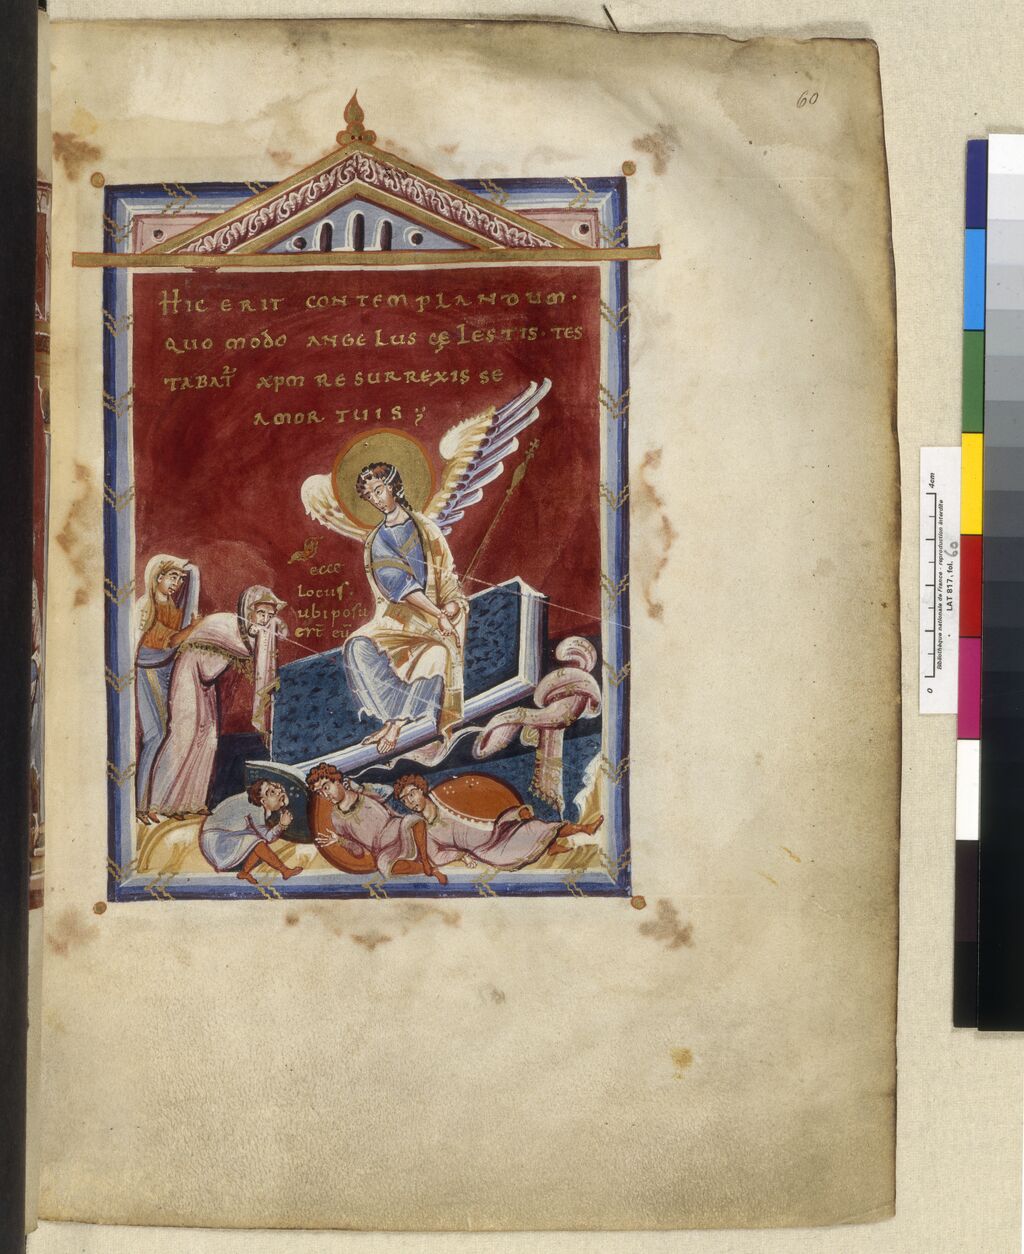 60
HIC ERIT CONTEMPLANDUM·
QUO MODO ANGELUS CĘLESTIS·TES
TABAT᷑ XPM RESURREXISSE
AMORTUIS
ecce
locus·
ubi posu
ert̄ eū
0 4cm
Bibliothèque nationale de France - reproduction interdite
LAT 817, fol. 60